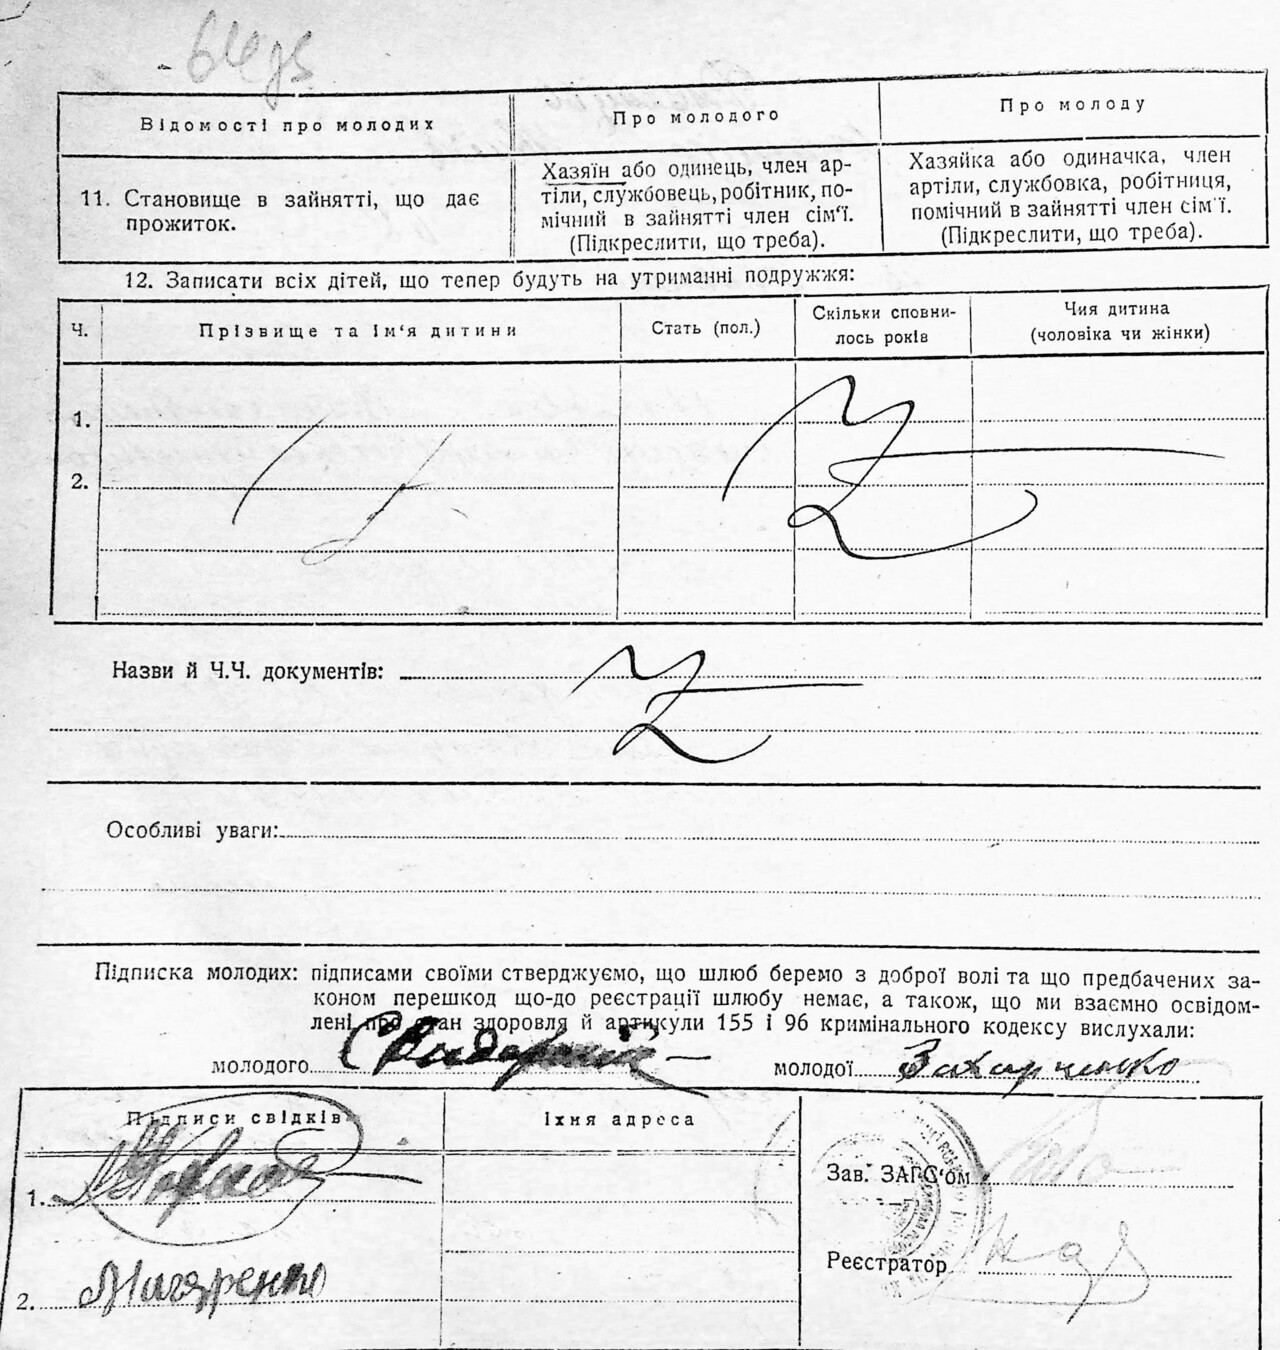 Відомості про молодих
Про молодого
Про молоду
11. Становище в зайнятті, що дає
прожиток.
Хазяїн або одинець, член ар-
тіли, службовець, робітник, по-
мічний в зайнятті член сім'ї.
(Підкреслити, що треба).
Хазяйка або одиначка, член
артіли, службовка, робітниця,
помічний в зайнятті член сім'ї.
(Підкреслити, що треба).
12. Записати всіх дітей, що тепер будуть на утриманні подружжя:
Ч.
Прізвище та ім'я дитини
Стать (пол.)
Скільки сповни-
лось років
Чия дитина
(чоловіка чи жінки)
1.
2.
Назви й Ч.Ч. документів:
Особливі уваги:
Підписка молодих: підписами своїми стверджуємо, що шлюб беремо з доброї волі та що предбачених за-
коном перешкод що-до реєстрації шлюбу немає, а також, що ми взаємно освідом-
лені про стан здоровля й артикули 155 і 96 кримінального кодексу вислухали:
молодого
молодої Захарченко
Підписи свідків
Їхня адреса
1.
Зав. ЗАГС'ом
Реєстратор
2.